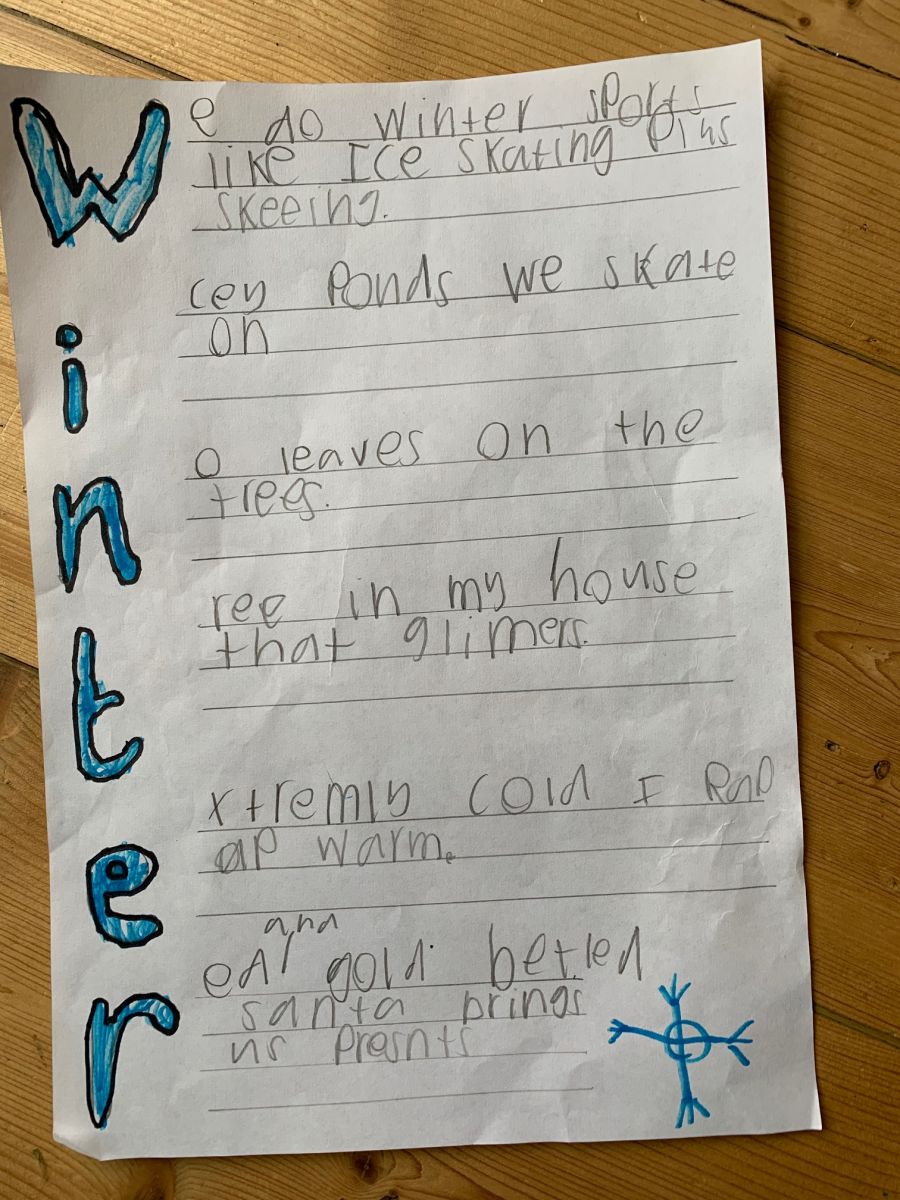 We do winter sports
like Ice skating Plus
skeeing.
icey Ponds we skate
on
no leaves on the
trees.
tree in my house
that glimers.
extremly cold I Rap
ap warm.
and
red gold betled
santa brings
us Presnts